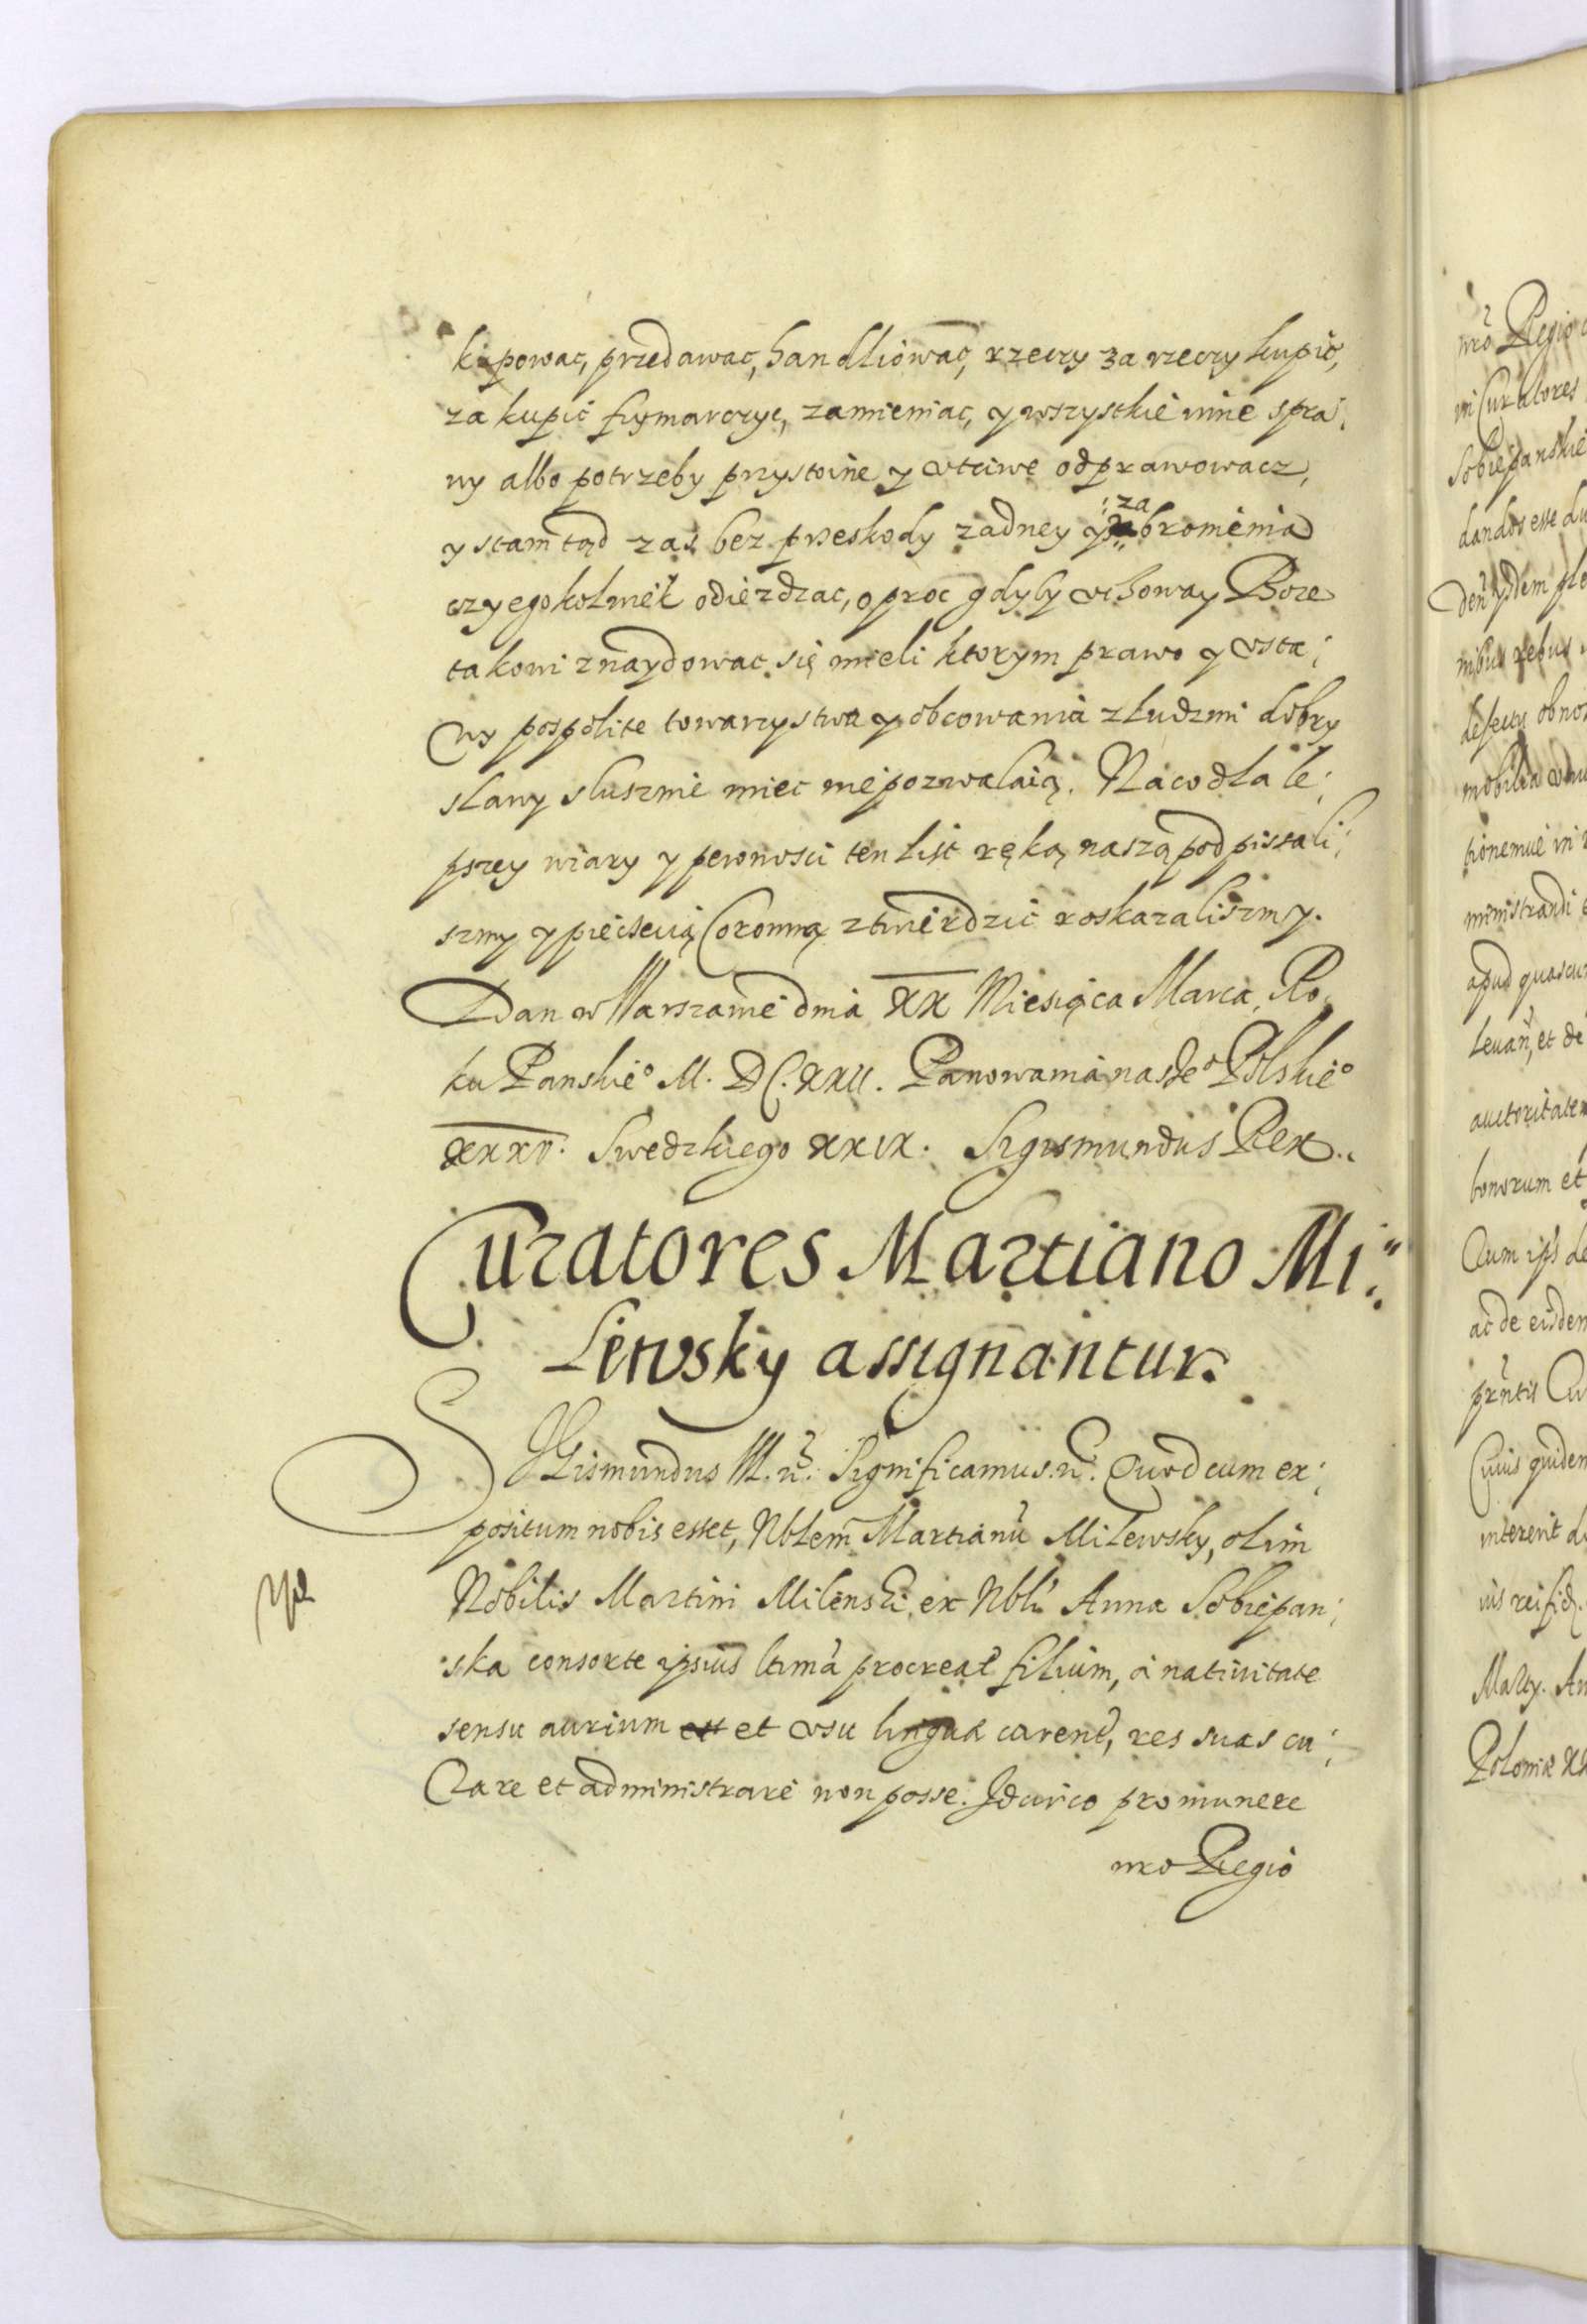 kupowac, przedawac, handliowac, rzeczy za rzeczy kupic,
zakupic frymarczyc, zamieniac, y wszystkie inne spra:
wy albo potrzeby przystoine y vtciwe odprawowacz,
y stamtąd zas bez przeskody zadney y zabronienia
czyegokolwiek odiezdzac, oproc gdyby vchoway Boze
takowi znaydowac się mieli ktorym prawo y vsta:
wy pospolite towarzystwa y obcowania z ludzmi dobry
slawy slusznie miec nie pozwalaią. Na co dla le:
pszey wiary y pewnosci ten list ręką naszą podpissali:
szmy y pieczecią Coronną ztwierdzic roskazaliszmy.
Dan w Warszawie dnia XX Miesiąca Marca, Ro:
ku Panskieº M. DC. XXII. Panowania naszeº Polskieº
XXXV. Swedzkiego XXIX. Sigismundus Rex.
Curatores Martiano Mi:
lewsky assignantur.
SIGismundus III. Significamus. Quod cum ex:
positum nobis esset, Nblem Martianũ Milewsky, olim
Nobilis Martini Milewski, ex Nbli Anna Sobiepan:
ska consorte ipsius ltima procreat filium, a nativitate
sensu aurium est et vsu linguæ carent, res suas cu:
rare et administrare non posse. Idcirco pro munere
nro Regio
nrõ Regio
mi Curatores
Sobiepanskie
dandos esse
mobilia
ministrandi
apud
et de
auctoritatem
bonorum et
Cum
ac de eisdem
Cuius quidem
intererit
Marty. An
Poloniæ